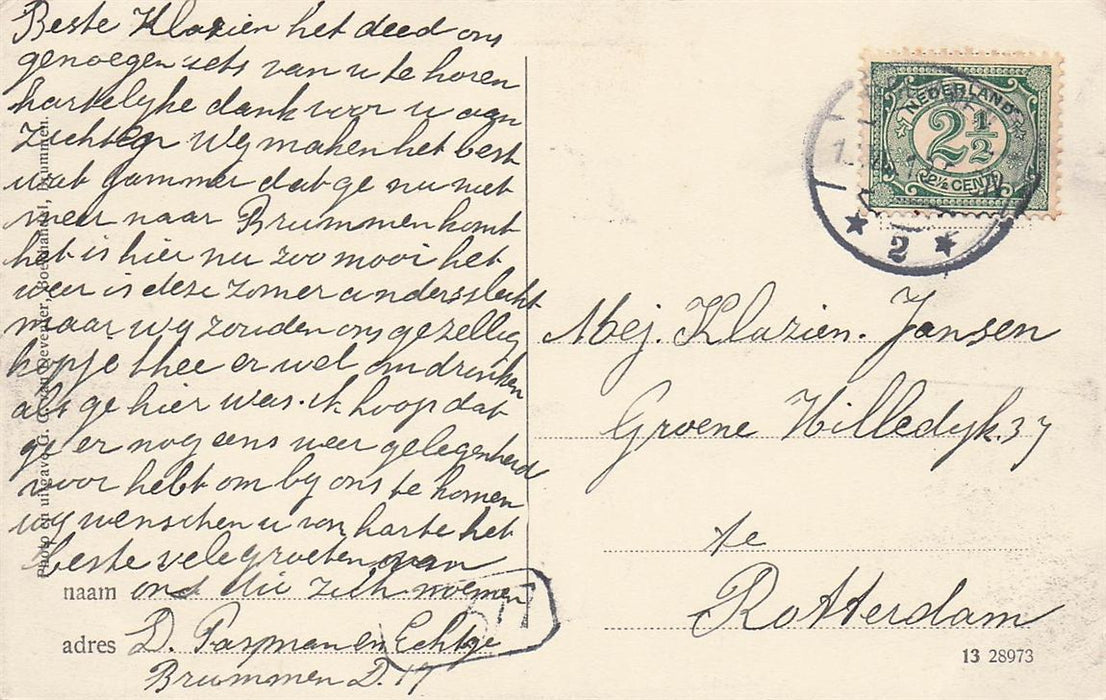 Beste Klazien het deed ons
genoegen iets van u te horen
hartelyke dank voor u aan
zichten Wy maken het best
wat jammer dat ge nu niet
meer naar Brummen komt
het is hier nu zoo mooi het
weer is deze zomer anders slecht
maar wy zouden ons gezellig
kopje thee er wel om drinken
als ge hier was. ik hoop dat
ge er nog eens weer gelegenheid
voor hebt om by ons te komen
wy wenschen u van harte het
beste vele groeten van
naam ons die zich noemen
adres D. Paspman en Echtge
Brummen D. 17
Photo en uitgave G. C. van Deventer, Boekhandel, Brummen.
NEDERLAND
2½
2½ CENT
2
Mej. Klazien. Jansen
Groene Hilledyk. 37
te
Rotterdam
13 28973